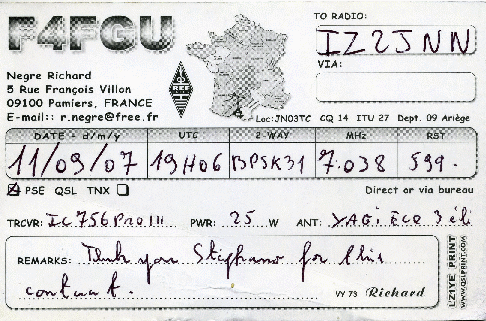 F4FGU
TO RADIO:
IZ2JNN
VIA:
Negre Richard
5 Rue François Villon
09100 Pamiers, FRANCE
E-mail:: r.negre@free.fr
REF
Loc:JN03TC CQ 14 ITU 27 Dept. 09 Ariège
DATE - d/m/y UTC 2-WAY MHz RST
11/09/07 19H06 BPSK31 7.038 599.
PSE QSL TNX Direct or via bureau
TRCVR: IC756PROIII PWR: 25 W ANT: YAGI ECO 3 éli
REMARKS: Thank you Stéphano for this
contact.
VY 73 Richard
LZ1YE PRINT
WWW.QSLPRINT.COM